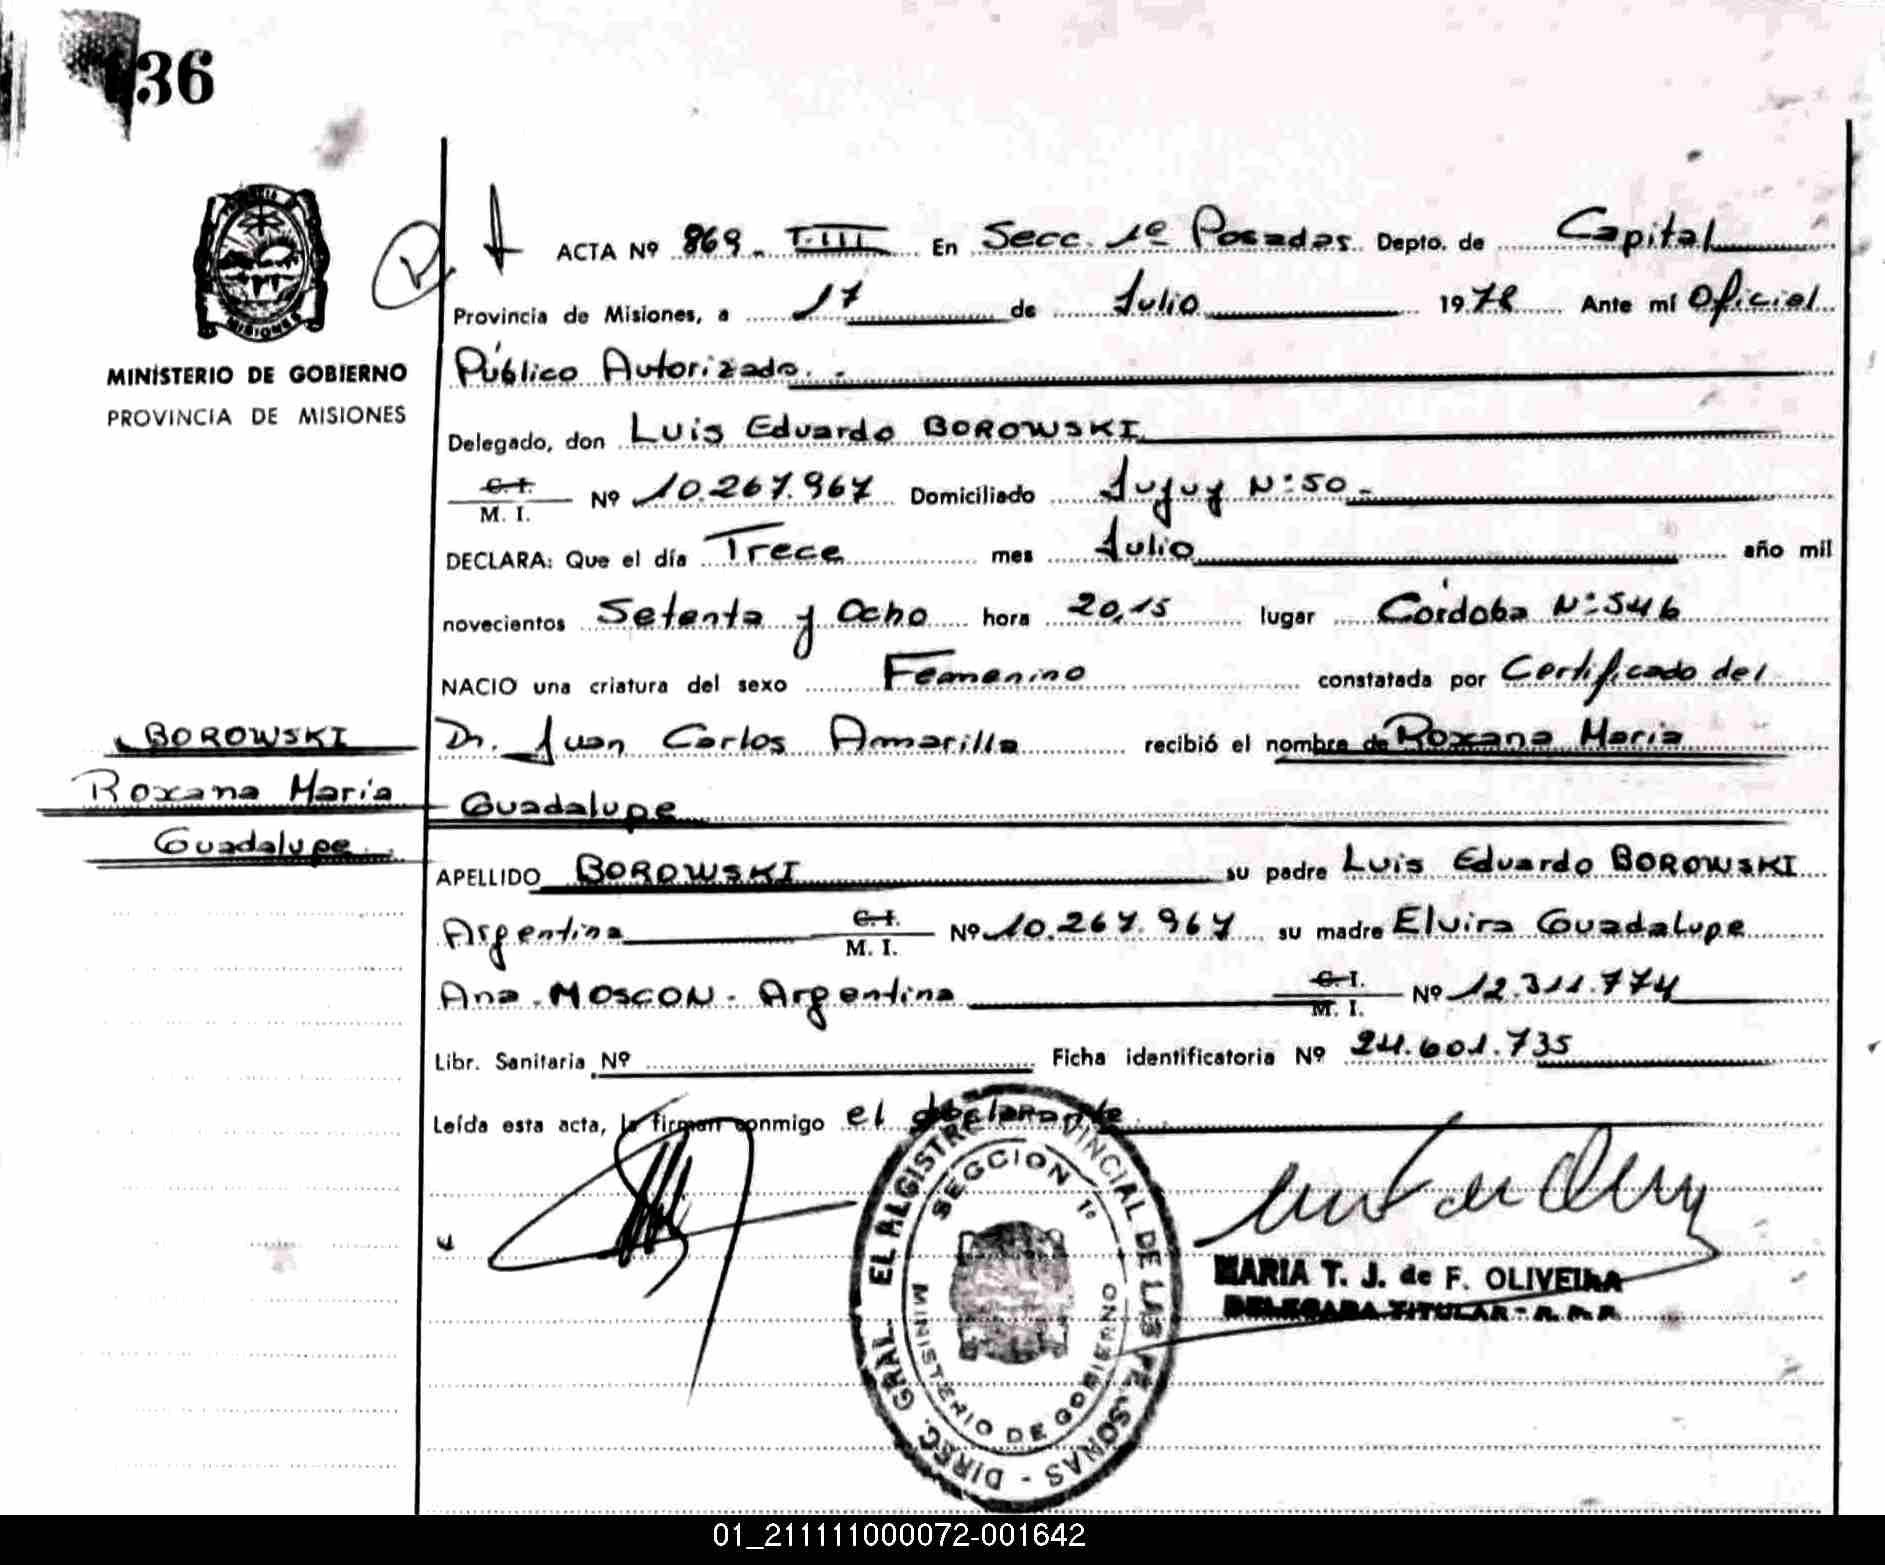 136
MISIONES
MINISTERIO DE GOBIERNO
PROVINCIA DE MISIONES
R
ACTA Nº 869 - T. III En Secc. 1º Posadas Depto. de Capital
Provincia de Misiones, a 17 de Julio 1978 Ante mí Oficial
Público Autorizado. -
Delegado, don Luis Eduardo BOROWSKI
C. I.
M. I. Nº 10.267.967 Domiciliado Jujuy Nº: 50 -
DECLARA: Que el día Trece mes Julio año mil
novecientos Setenta y Ocho hora 20,15 lugar Córdoba Nº: 546
NACIO una criatura del sexo Femenino constatada por Certificado del
Dr. Juan Carlos Amarilla recibió el nombre de Roxana María
Guadalupe
BOROWSKI
Roxana María
Guadalupe
APELLIDO BOROWSKI su padre Luis Eduardo BOROWSKI
Argentina C. I.
M. I. Nº 10.267.967 su madre Elvira Guadalupe
Ana - MOSCON - Argentina C. I.
M. I. Nº 12.311.774
Libr. Sanitaria Nº Ficha identificatoria Nº 24.601.735
Leída esta acta, la firman conmigo el declarante
DIREC. GRAL. PROVINCIAL DE LAS PERSONAS -
SECCION 1º
MINISTERIO DE GOBIERNO
MARIA T. J. de F. OLIVEIRA
DELEGADA TITULAR - R. P. P.
01_211111000072-001642